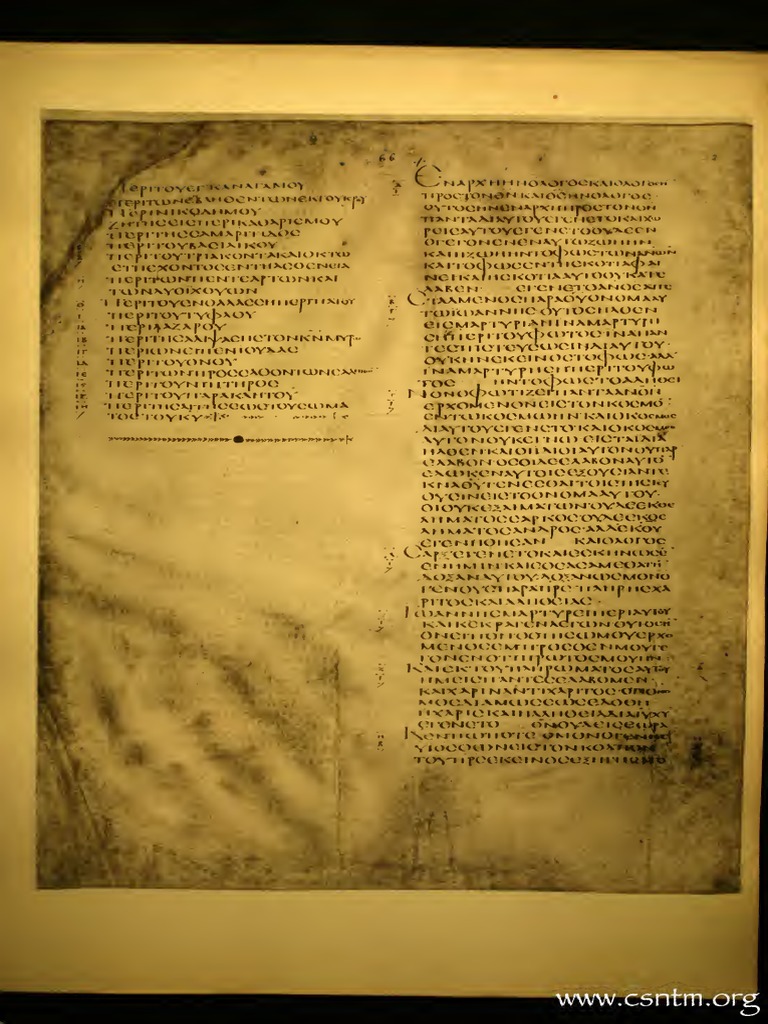 ΠΕΡΙΤΟΥΕΝΚΑΝΑΓΑΜΟΥ
ΠΕΡΙΝΙΚΟΔΗΜΟΥ
ΖΗΤΗΣΙΣΠΕΡΙΚΑΘΑΡΙΣΜΟΥ
ΠΕΡΙΤΗΣΣΑΜΑΡΙΤΙΔΟΣ
ΠΕΡΙΤΟΥΒΑΣΙΛΙΚΟΥ
ΠΕΡΙΤΟΥΤΡΙΑΚΟΝΤΑΚΑΙΟΚΤΩ
ΕΤΗΕΧΟΝΤΟΣΕΝΤΗΑΣΘΕΝΕΙΑ
ΠΕΡΙΤΩΝΠΕΝΤΕΑΡΤΩΝΚΑΙ
ΤΩΝΔΥΟΙΧΘΥΩΝ
ΠΕΡΙΤΟΥΤΥΦΛΟΥ
ΠΕΡΙΛΑΖΑΡΟΥ
ΠΕΡΙΩΝΕΙΠΕΝΙΟΥΔΑΣ
ΠΕΡΙΤΟΥΟΝΟΥ
ΠΕΡΙΤΟΥΝΙΠΤΗΡΟΣ
ΠΕΡΙΤΟΥΠΑΡΑΚΛΗΤΟΥ
ΠΕΡΙΤΗΣΑΙΤΗΣΕΩΣΤΟΥΣΩΜΑ
ΤΟΣΤΟΥΚΥ
66
ΕΝΑΡΧΗΗΝΟΛΟΓΟΣΚΑΙΟΛΟΓΟΣΗΝ
ΠΡΟΣΤΟΝΘΝΚΑΙΘΣΗΝΟΛΟΓΟΣ·
ΟΥΤΟΣΗΝΕΝΑΡΧΗΠΡΟΣΤΟΝΘΝ
ΠΑΝΤΑΔΙΑΥΤΟΥΕΓΕΝΕΤΟΚΑΙΧΩ
ΡΕΙΣΑΥΤΟΥΕΓΕΝΕΤΟΟΥΔΕΕΝ
ΟΓΕΓΟΝΕΝΕΝΑΥΤΩΖΩΗΗΝ
ΚΑΙΗΖΩΗΗΝΤΟΦΩΣΤΩΝΑΝΩΝ
ΚΑΙΤΟΦΩΣΕΝΤΗΣΚΟΤΙΑΦΑΙ
ΝΕΙΚΑΙΗΣΚΟΤΙΑΑΥΤΟΟΥΚΑΤΕ
ΛΑΒΕΝ ΕΓΕΝΕΤΟΑΝΟΣΑΠΕ
ΣΤΑΛΜΕΝΟΣΠΑΡΑΘΥΟΝΟΜΑΑΥ
ΤΩΙΩΑΝΝΗΣΟΥΤΟΣΗΛΘΕΝ
ΕΙΣΜΑΡΤΥΡΙΑΝΙΝΑΜΑΡΤΥΡΗ
ΣΗΠΕΡΙΤΟΥΦΩΤΟΣΙΝΑΠΑΝ
ΤΕΣΠΙΣΤΕΥΣΩΣΙΝΔΙΑΥΤΟΥ·
ΟΥΚΗΝΕΚΕΙΝΟΣΤΟΦΩΣΑΛΛ
ΙΝΑΜΑΡΤΥΡΗΣΗΠΕΡΙΤΟΥΦΩ
ΤΟΣ ΗΝΤΟΦΩΣΤΟΑΛΗΘΕΙ
ΝΟΝΟΦΩΤΙΖΕΙΠΑΝΤΑΑΝΟΝ
ΕΡΧΟΜΕΝΟΝΕΙΣΤΟΝΚΟΣΜΟ
ΕΝΤΩΚΟΣΜΩΗΝΚΑΙΟΚΟΣΜΟΣ
ΔΙΑΥΤΟΥΕΓΕΝΕΤΟΚΑΙΟΚΟΣΜΟΣ
ΑΥΤΟΝΟΥΚΕΓΝΩ ΕΙΣΤΑΙΔΙΑ
ΗΛΘΕΝΚΑΙΟΙΙΔΙΟΙΑΥΤΟΝΟΥΠΑΡ
ΕΛΑΒΟΝΟΣΟΙΔΕΕΛΑΒΟΝΑΥΤΟ
ΕΔΩΚΕΝΑΥΤΟΙΣΕΞΟΥΣΙΑΝΤΕ
ΚΝΑΘΥΓΕΝΕΣΘΑΙΤΟΙΣΠΙΣΤΕΥ
ΟΥΣΙΝΕΙΣΤΟΟΝΟΜΑΑΥΤΟΥ·
ΟΙΟΥΚΕΞΑΙΜΑΤΩΝΟΥΔΕΕΚΘΕ
ΛΗΜΑΤΟΣΣΑΡΚΟΣΟΥΔΕΕΚΘΕ
ΛΗΜΑΤΟΣΑΝΔΡΟΣ·ΑΛΛΕΚΘΥ
ΕΓΕΝΗΘΗΣΑΝ ΚΑΙΟΛΟΓΟΣ
ΣΑΡΞΕΓΕΝΕΤΟΚΑΙΕΣΚΗΝΩΣΕ
ΕΝΗΜΙΝΚΑΙΕΘΕΑΣΑΜΕΘΑΤΗ
ΔΟΞΑΝΑΥΤΟΥΔΟΞΑΝΩΣΜΟΝΟ
ΓΕΝΟΥΣΠΑΡΑΠΡΣΠΛΗΡΗΣΧΑ
ΡΙΤΟΣΚΑΙΑΛΗΘΕΙΑΣ·
ΙΩΑΝΝΗΣΜΑΡΤΥΡΕΙΠΕΡΙΑΥΤΟΥ
ΚΑΙΚΕΚΡΑΓΕΝΛΕΓΩΝΟΥΤΟΣΗ
ΟΝΕΙΠΟΝΟΟΠΙΣΩΜΟΥΕΡΧΟ
ΜΕΝΟΣΕΜΠΡΟΣΘΕΝΜΟΥΓΕ
ΓΟΝΕΝΟΤΙΠΡΩΤΟΣΜΟΥΗΝ·
ΚΑΙΕΚΤΟΥΠΛΗΡΩΜΑΤΟΣΑΥΤΟΥ
ΗΜΕΙΣΠΑΝΤΕΣΕΛΑΒΟΜΕΝ
ΚΑΙΧΑΡΙΝΑΝΤΙΧΑΡΙΤΟΣ·ΟΤΙΟΝΟ
ΜΟΣΔΙΑΜΩΣΕΩΣΕΔΟΘΗ
ΗΧΑΡΙΣΚΑΙΗΑΛΗΘΕΙΑΔΙΑΙΥΧΥ
ΕΓΕΝΕΤΟ ΘΝΟΥΔΕΙΣΕΩΡΑ
ΚΕΝΠΩΠΟΤΕ·ΟΜΟΝΟΓΕΝΗΣ
ΥΙΟΣΟΩΝΕΙΣΤΟΝΚΟΛΠΟΝ
ΤΟΥΠΡΣΕΚΕΙΝΟΣΕΞΗΓΗΣΑΤΟ
www.csntm.org